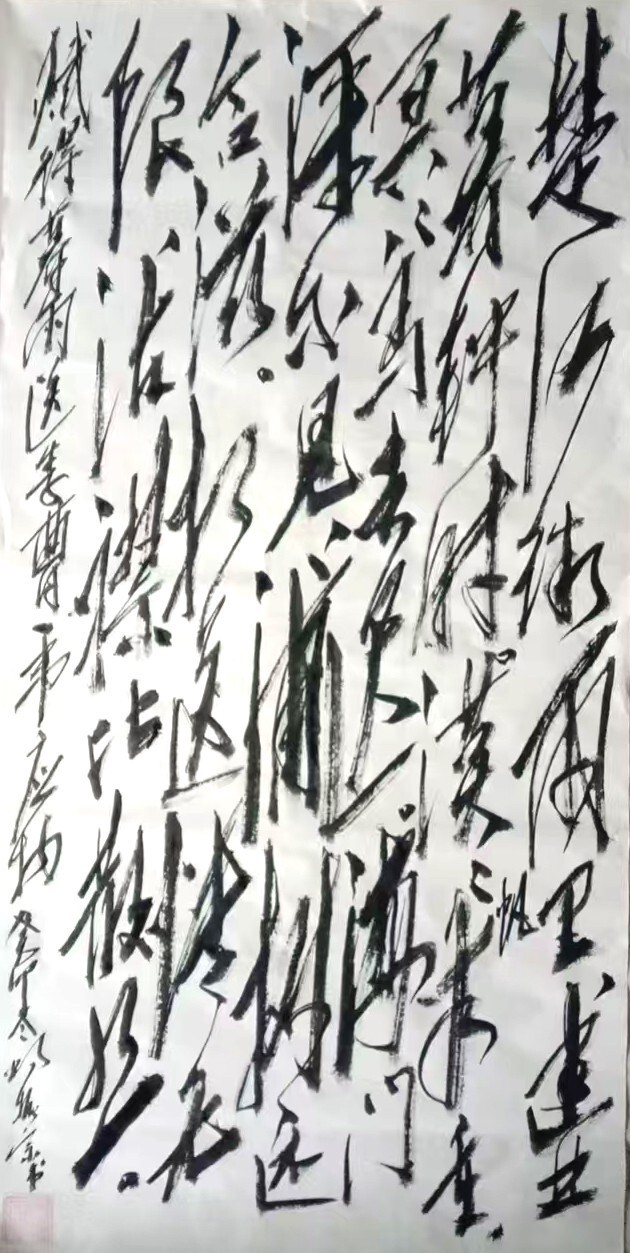 楚江微雨里建业
暮钟时漠〻帆来重
冥〻鸟去迟海门
深不见浦树远
含滋相送情无
限沾襟比散丝
赋得暮雨送李曹 韦应物 癸卯冬 书